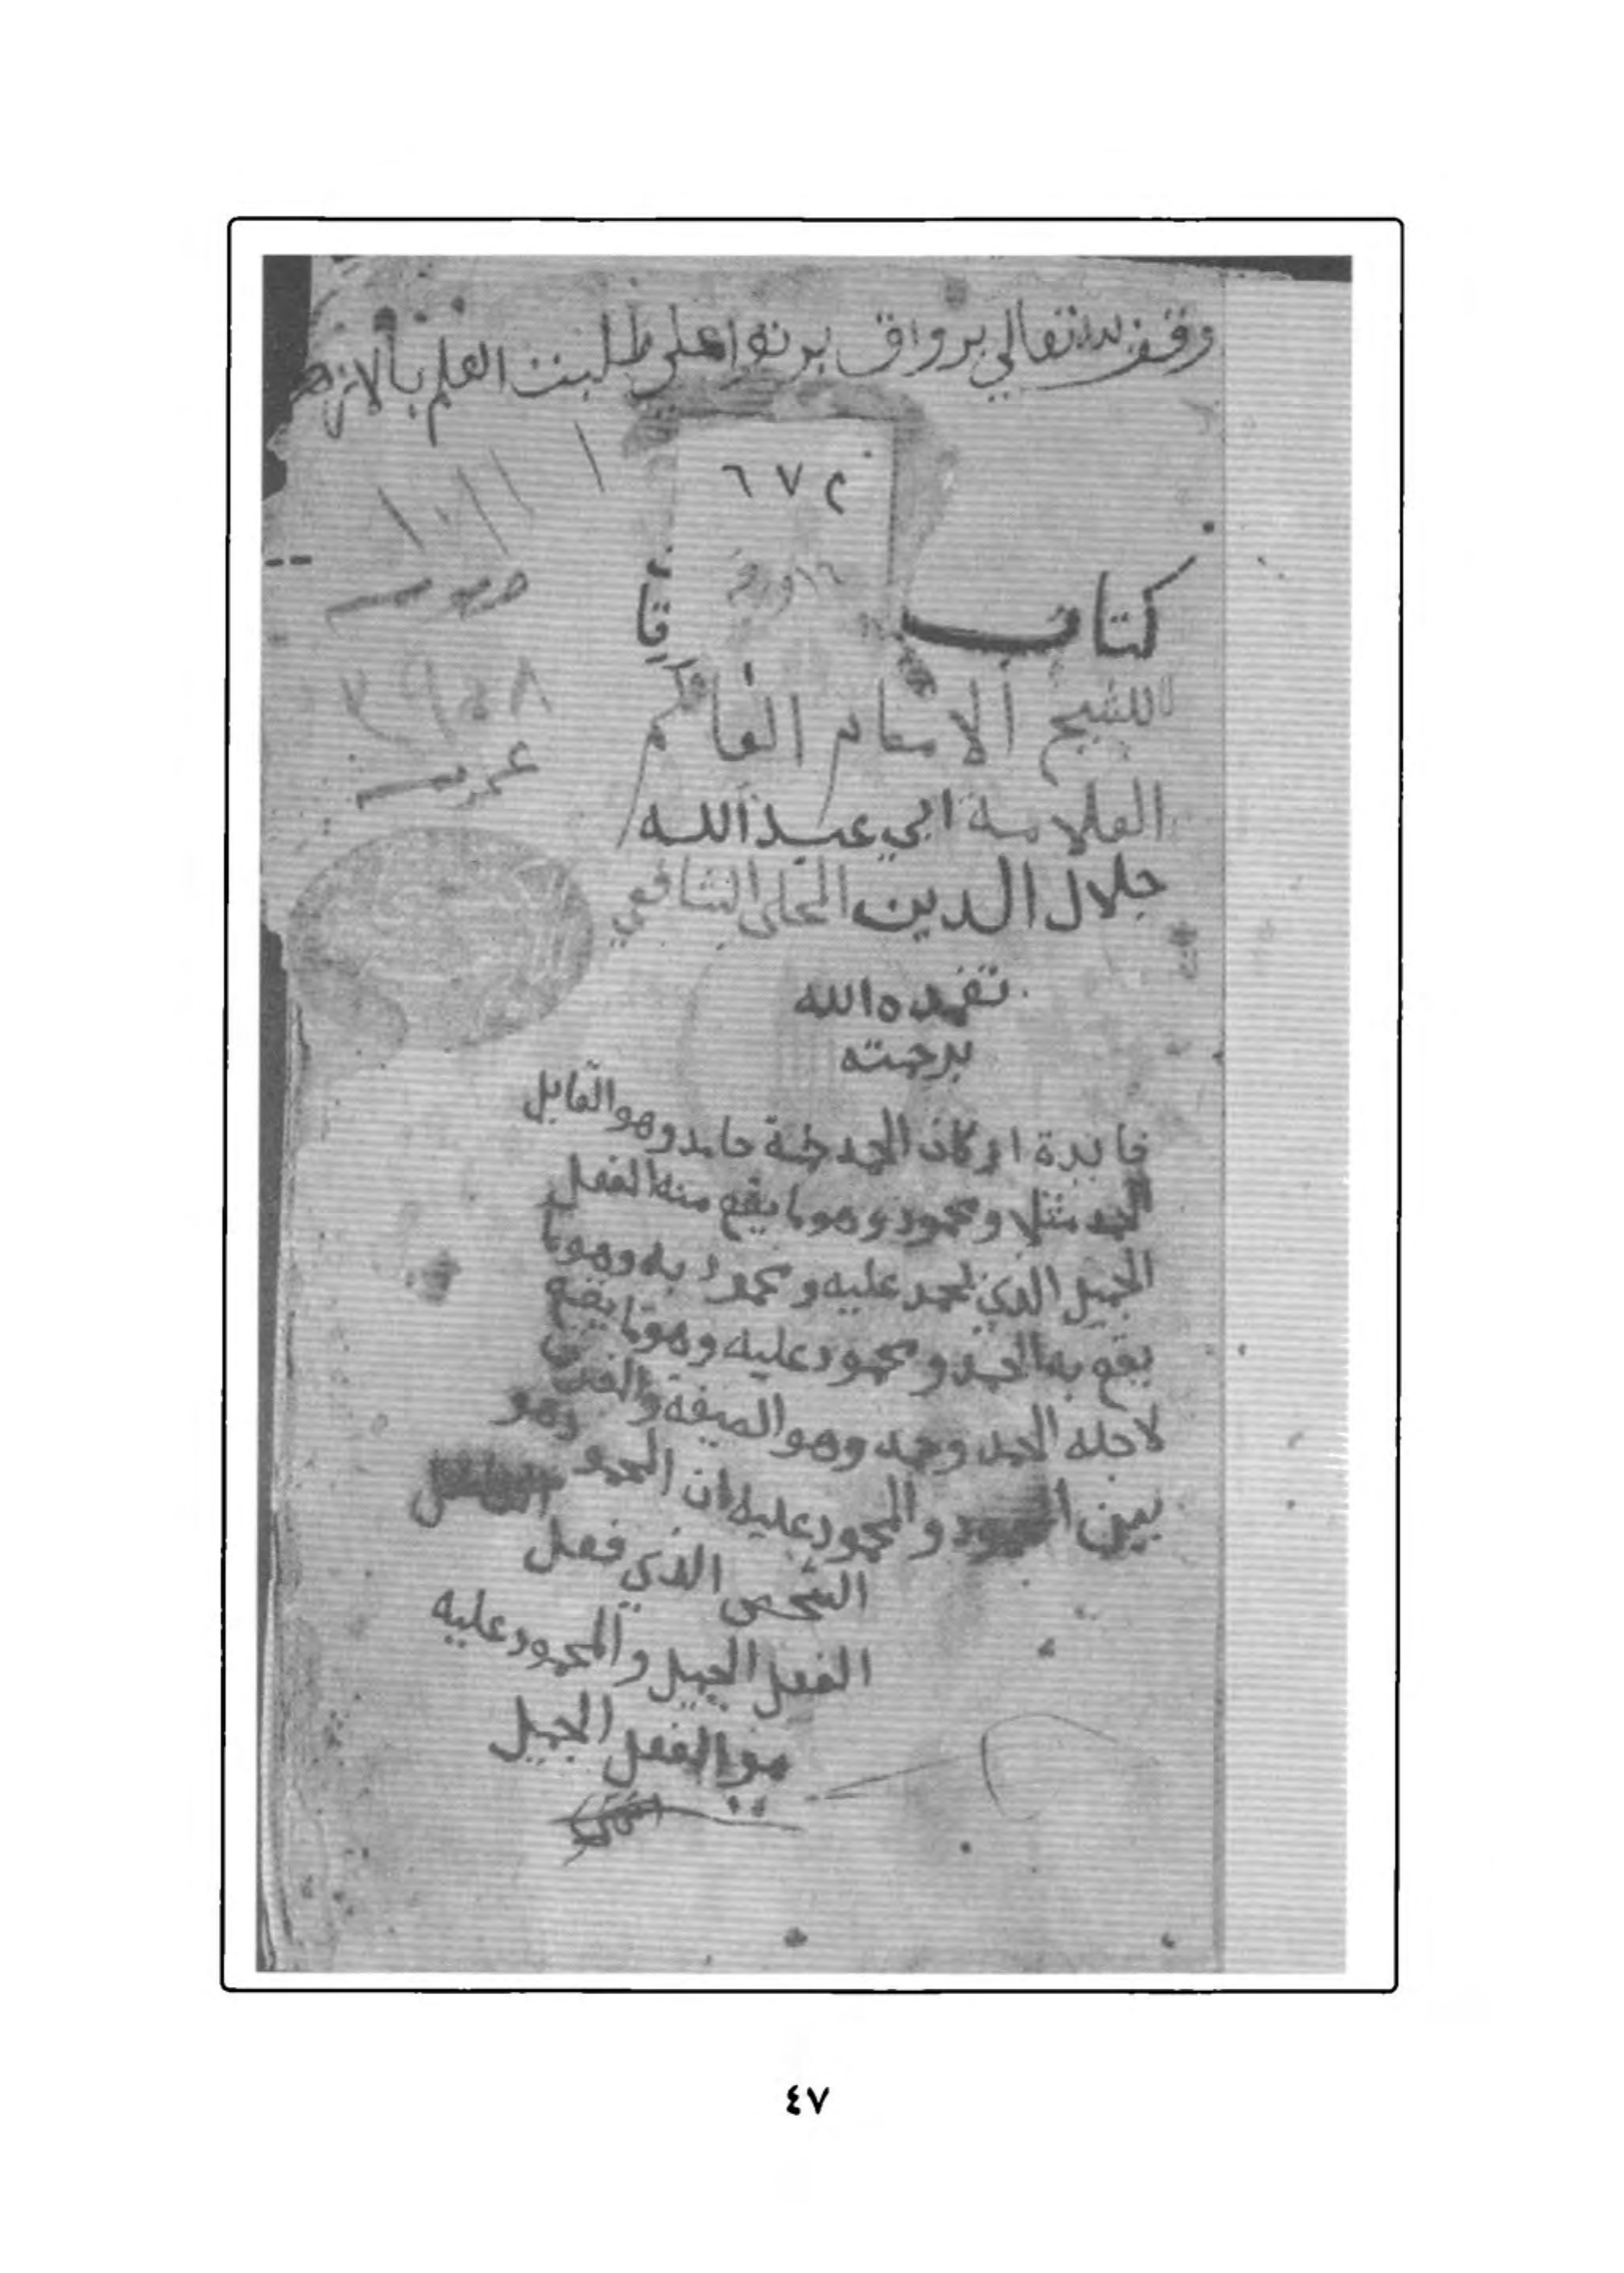 وقف لله تعالي برواق برنوا علي طلبت العلم بالازهر
٦٧٢
١٦ ورقة
كتاب
قا
خصوصية
للشيخ الامام العالم
٣٩٠٨
عمومية
العلامة ابي عبد الله
جلال الدين المحلي الشافعي
تغمده الله
برحمته
فايدة اركان الحمد خمسة حامد وهو القايل
الحمد مثلا ومحمود وهو ما يقع منه الفعل
الجميل الذي يحمد عليه ومحمود به وهو ما
يقع به الحمد ومحمود عليه وهو ما يقع
لاجله الحمد وحمد وهو الصيغة والفرق
بين المحمود والمحمود عليه ان المحمود هو
الشخص الذي فعل
الفعل الجميل والمحمود عليه
هو الفعل الجميل
٤٧